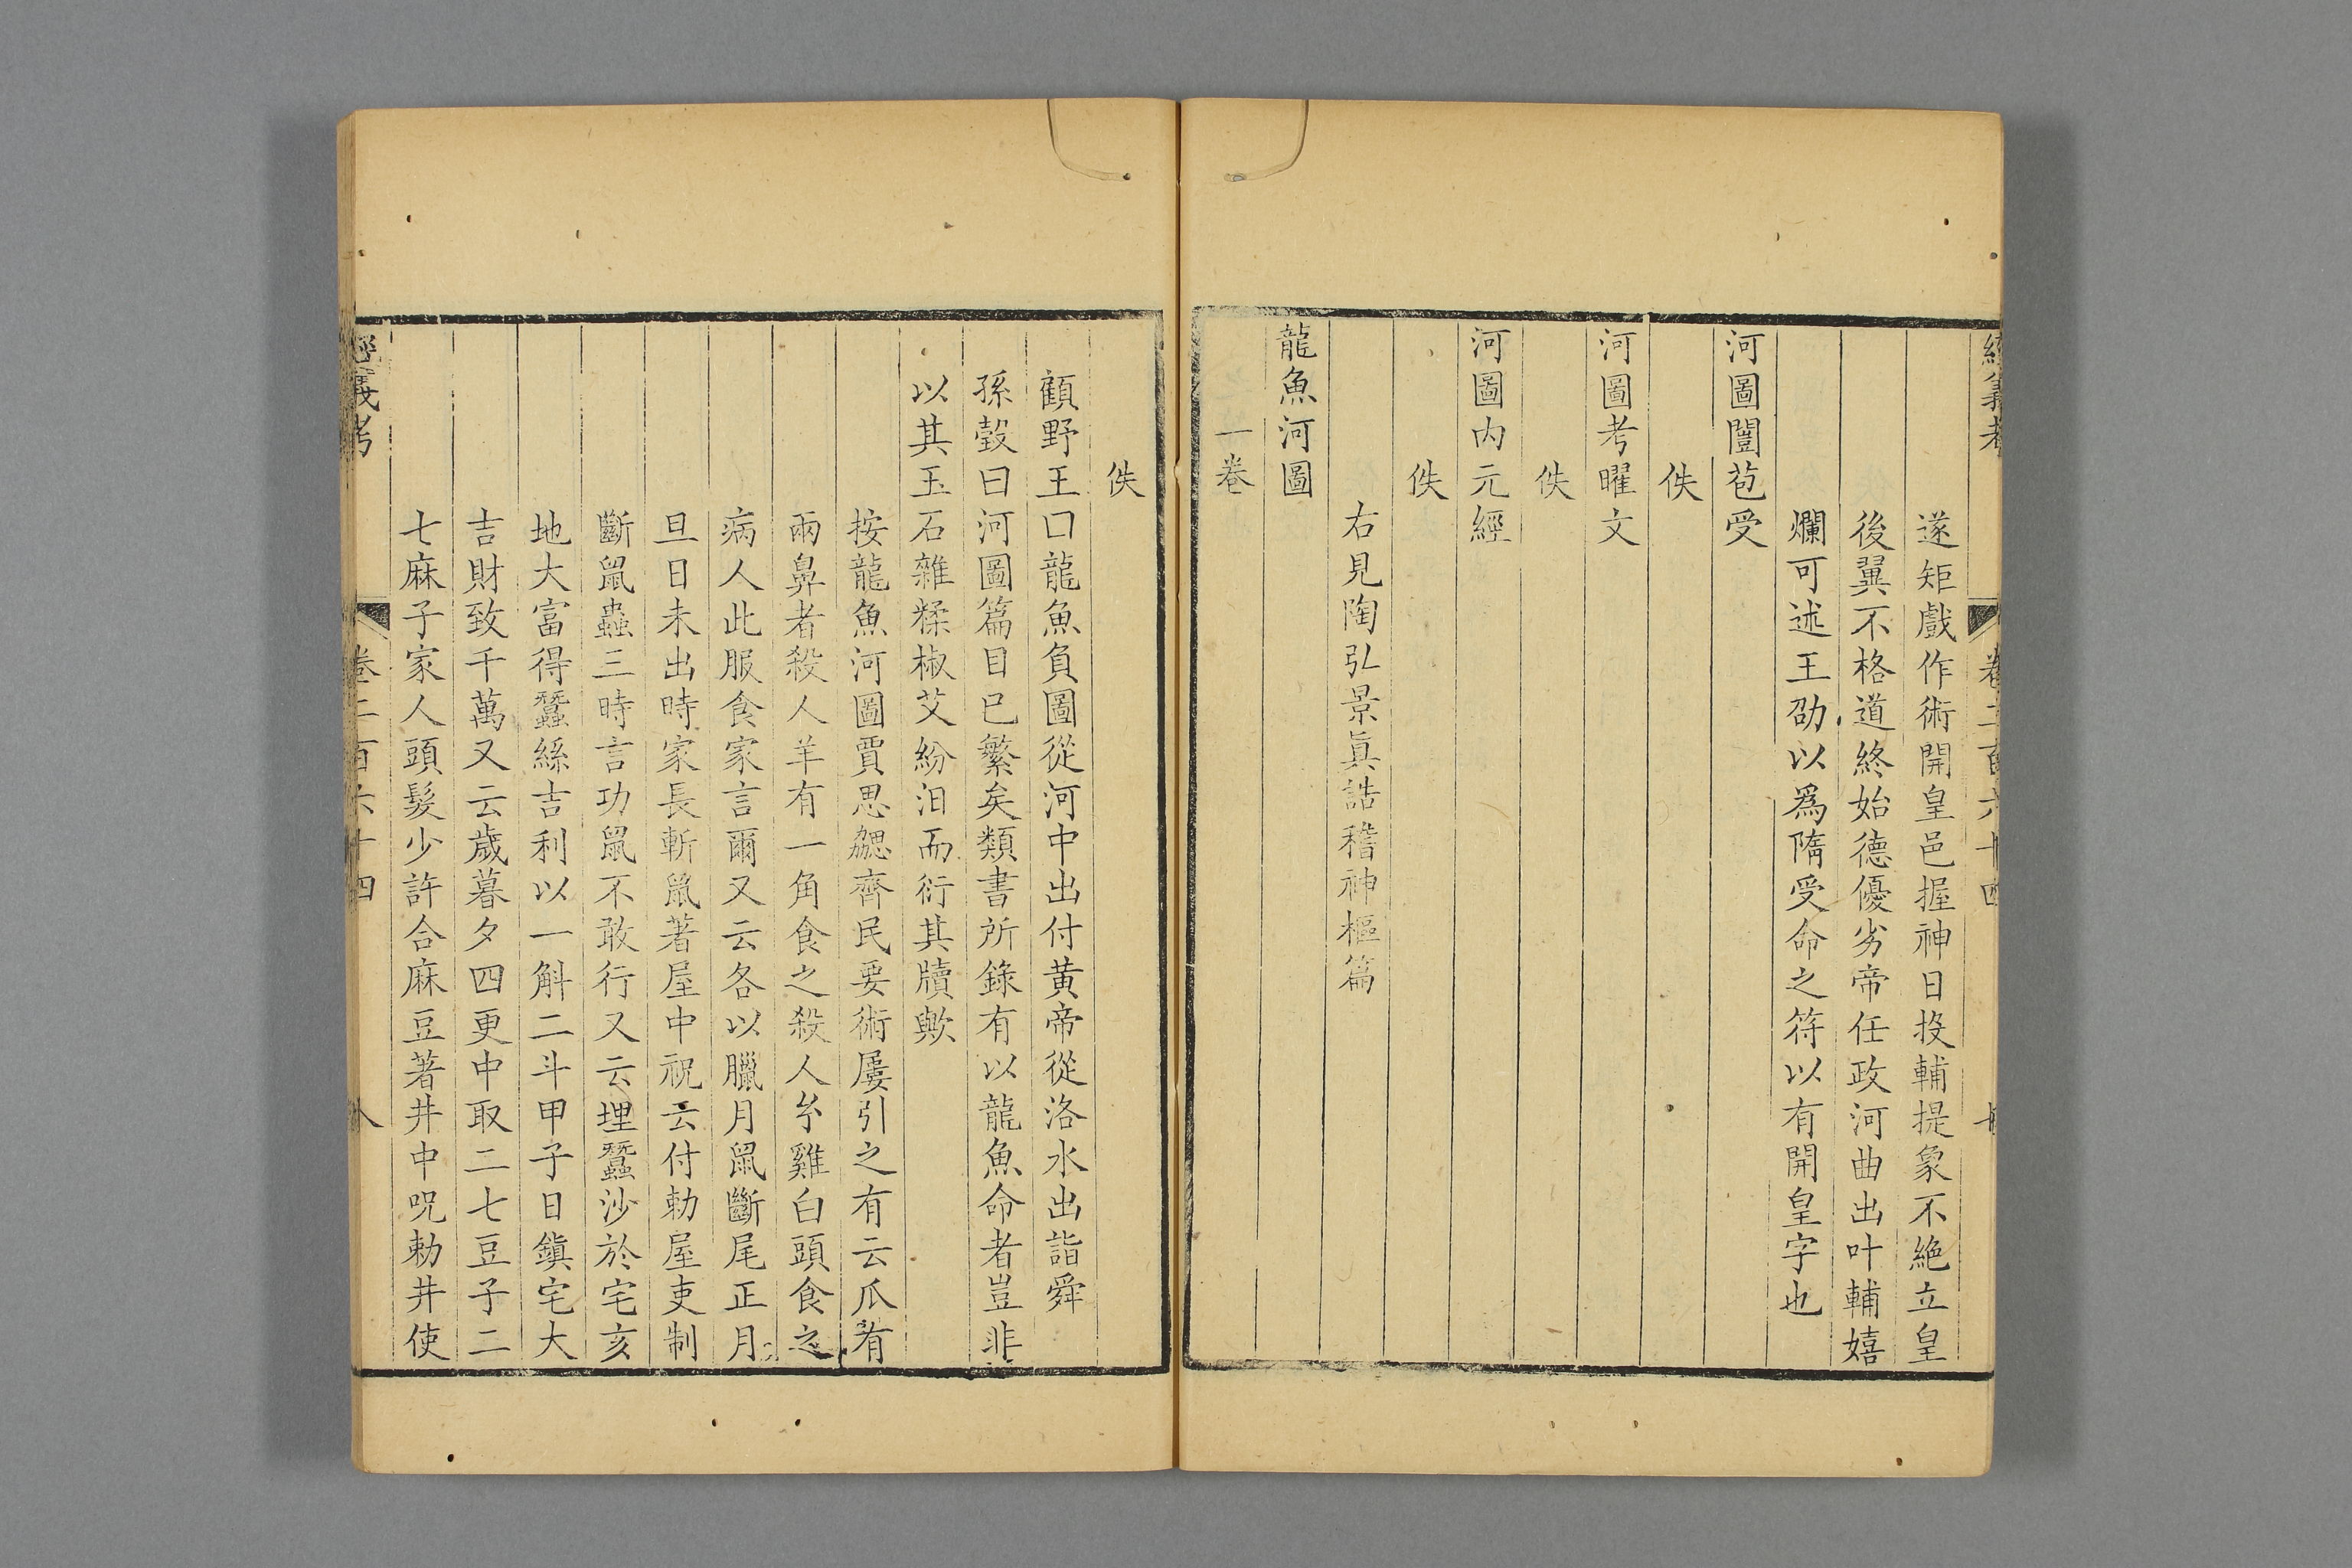 經義考 卷二百六十四
遂矩戲作術開皇邑握神日投輔提象不絶立皇
後翼不格道終始德優劣帝任政河曲出叶輔嬉
爛可述王劭以爲隋受命之符以有開皇字也
河圖闓苞受
佚
河圖考曜文
佚
河圖内元經
佚
右見陶弘景眞誥稽神樞篇
龍魚河圖
一卷
佚
顧野王曰龍魚負圖從河中出付黄帝從洛水出詣舜
孫瑴曰河圖篇目已繁矣類書所錄有以龍魚命者豈非
以其玉石雜糅椒艾紛汨而衍其牘歟
按龍魚河圖賈思勰齊民要術屢引之有云瓜有
兩鼻者殺人羊有一角食之殺人𤣥雞白頭食之
病人此服食家言爾又云各以臘月鼠斷尾正月
旦日未出時家長斬鼠著屋中祝云付勅屋吏制
斷鼠蟲三時言功鼠不敢行又云埋蠶沙於宅亥
地大富得蠶絲吉利以一斛二斗甲子日鎭宅大
吉財致千萬又云歲暮夕四更中取二七豆子二
七麻子家人頭髮少許合麻豆著井中呪勅井使
經義考 卷二百六十四 八